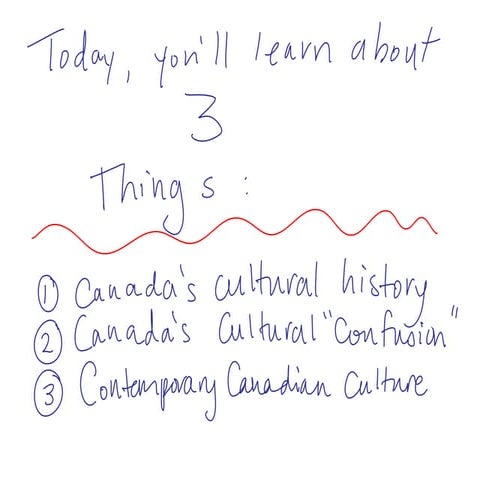 Today, you'll learn about
3
Things :
① Canada's cultural history
② Canada's Cultural "Confusion"
③ Contemporary Canadian Culture